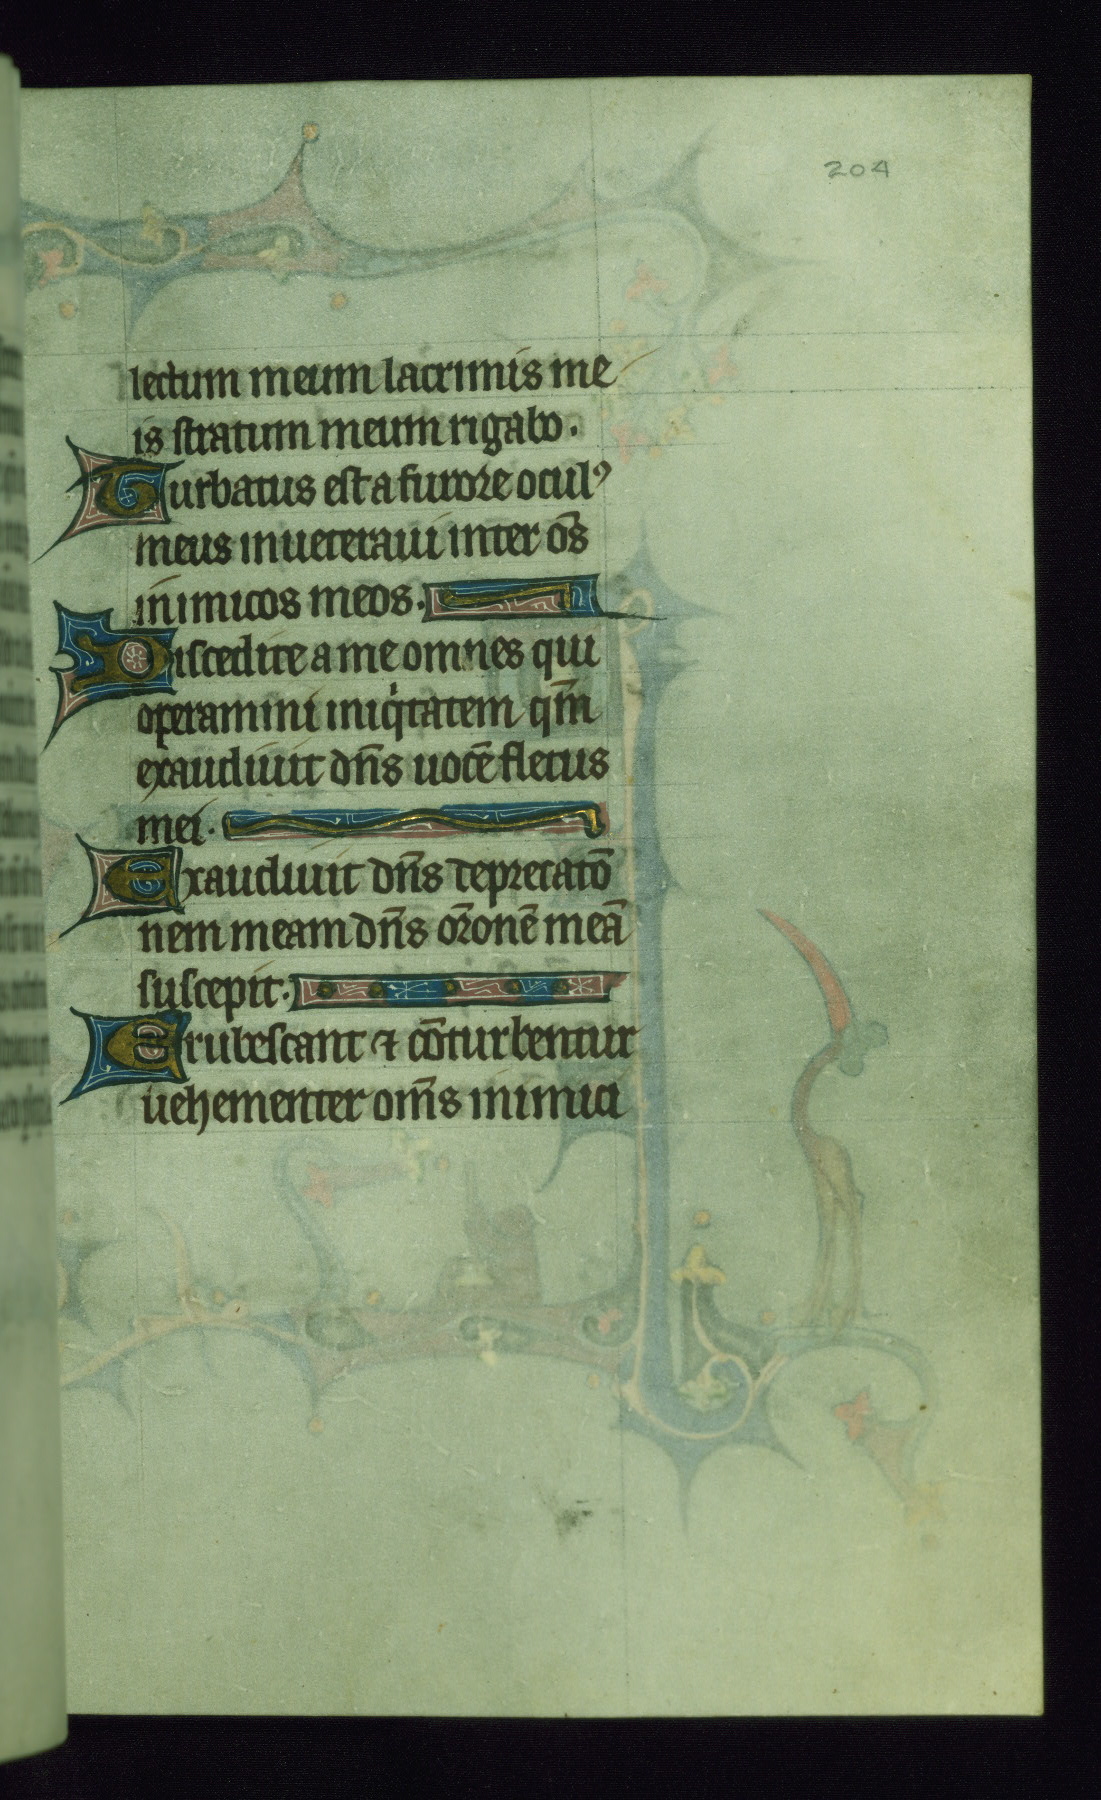 204
lectum meum lacrimis me
is stratum meum rigabo.
Turbatus est a furore oculꝰ
meus inueteraui inter om̄s
inimicos meos.
Discedite a me omnes qui
operamini iniqͥtatem qm̄
exaudiuit dn̄s uocē fletus
mei.
Exaudiuit dn̄s deprecatō
nem meam dn̄s orōnē meā
suscepit.
Erubescant ⁊ cōturbentur
uehementer om̄s inimici